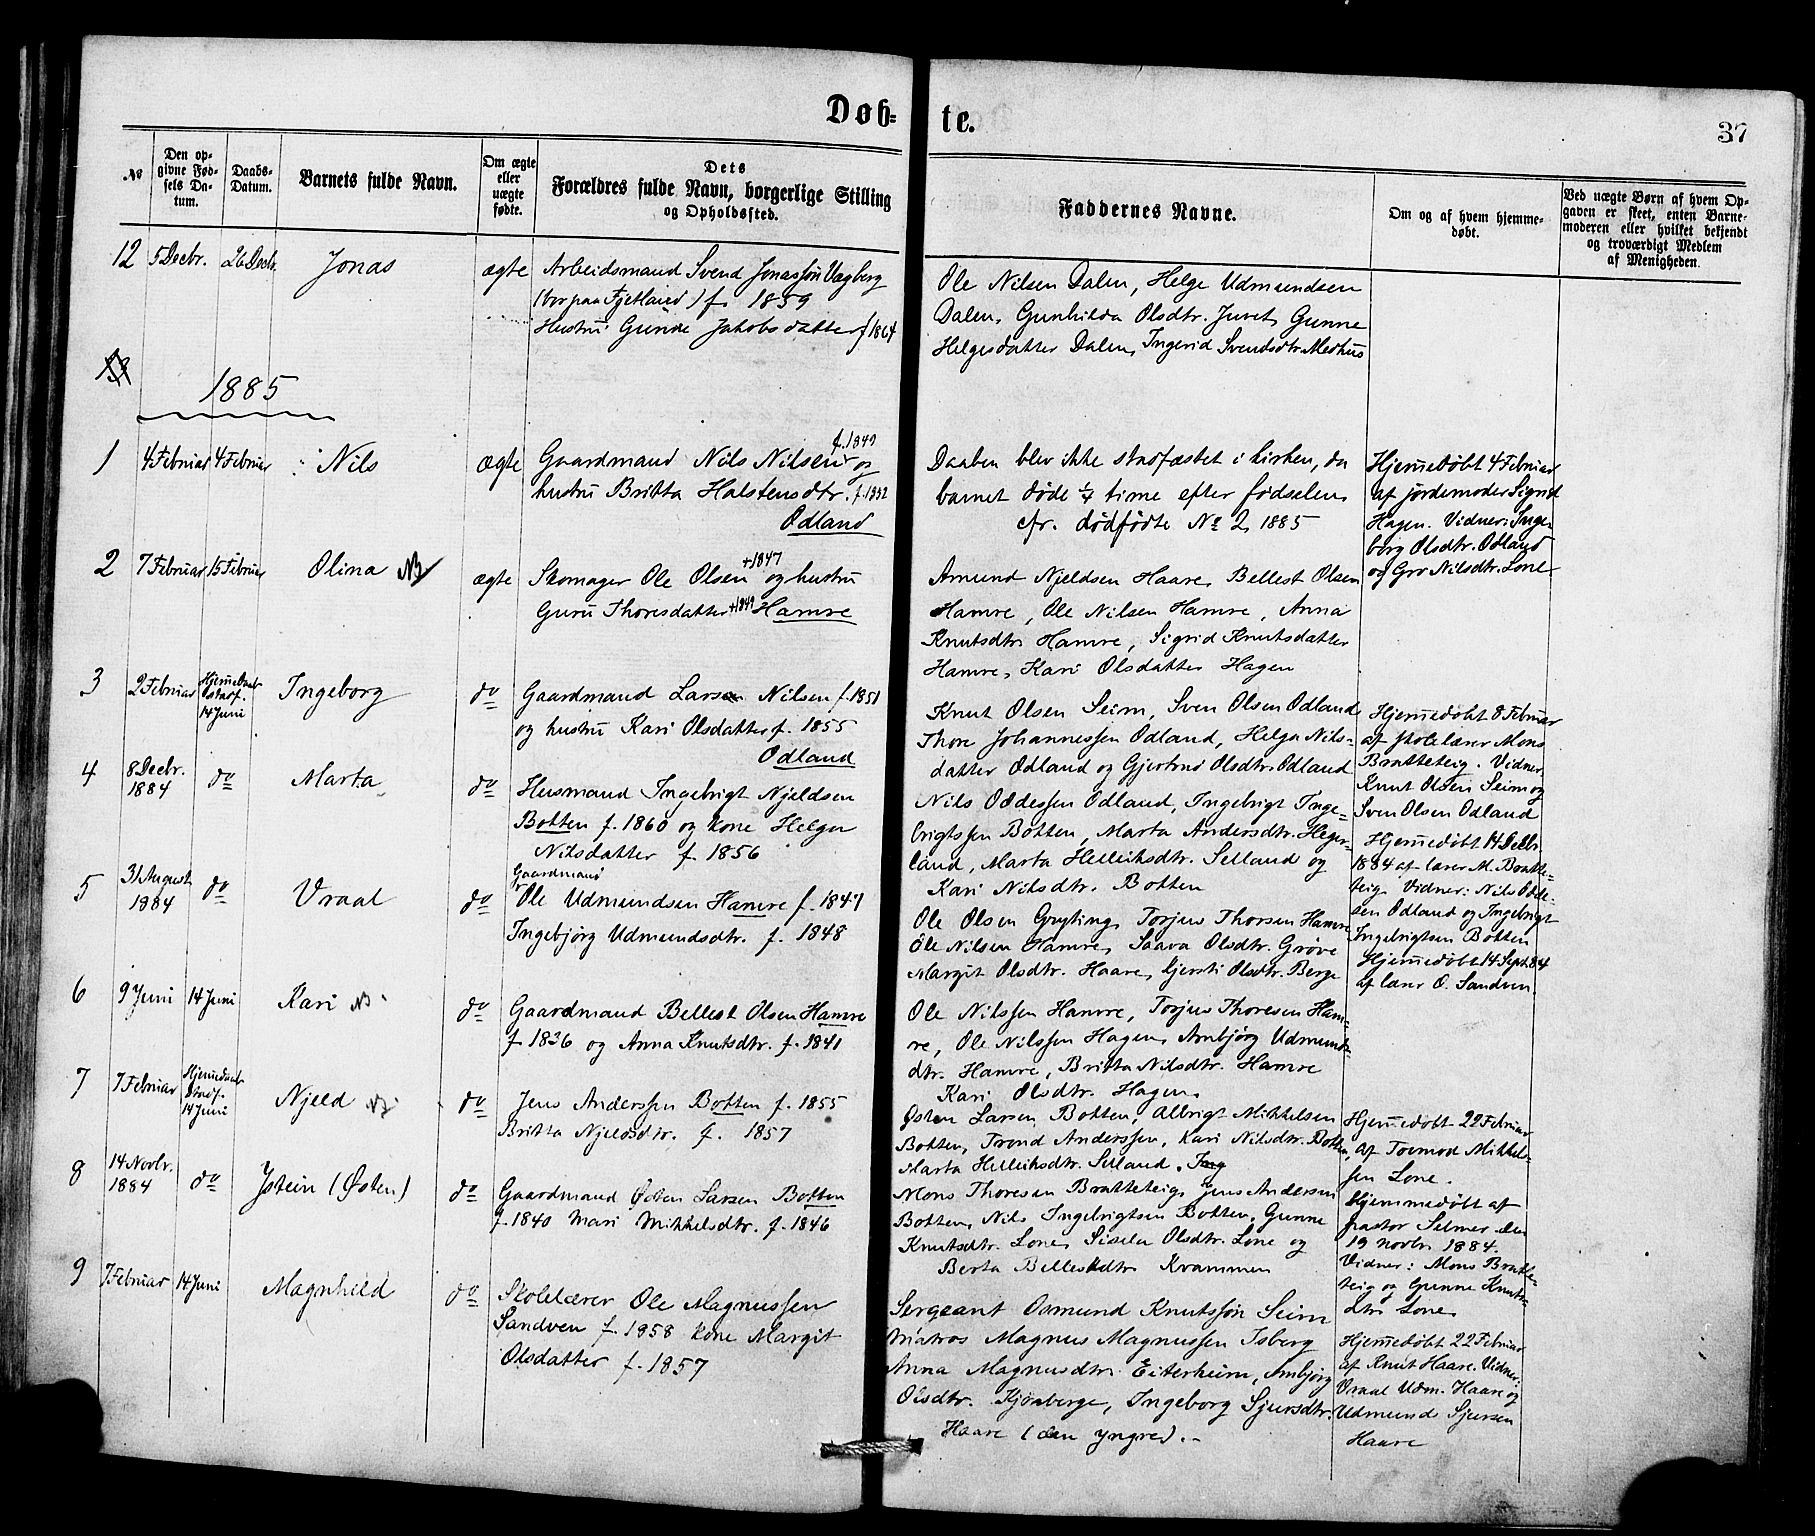 Døb-
te.
37
No
Den op-
givne Fød-
sels Da-
tum.
Daabs-
Datum.
Barnets fulde Navn.
Om ægte
eller
uægte
fødte.
Dets
Forældres fulde Navn, borgerlige Stilling
og Opholdssted.
Faddernes Navne.
Om og af hvem hjemme-
døbt.
Ved uægte Børn af hvem Op-
gaven er skeet, enten Barne-
moderen eller hvilket bekjendt
og troværdigt Medlem
af Menigheden.
12 5 Decbr. 26 Decbr. Jonas ægte
Arbeidsmand Svend Jonassøn Vagberg
(bor paa Fjetland) f. 1859
Hustru Gunne Jakobsdatter f 1864
Ole Nilsen Dalen, Helge Udmundsen
Dalen, Gunhilda Olsdtr. Juvet, Gunne
Helgesdatter Dalen, Ingerid Svendsdtr Medhus
13
1885
1 4 Februar 4 Februar Nils ægte
f. 1849
Gaardmand Nils Nilsen og
hustru Britta Halstensdtr. f. 1852
Odland
Daaben blev ikke stadfæstet i kirken, da
barnet døde ¼ time efter fødselen,
cfr. dødfødte No 2, 1885
Hjemedøbt 4 Februar
af jordemoder Sigrid
Hagen. Vidner: Inge-
borg Olsdtr. Odland
og Gro Nilsdtr. Lone.
2 7 Februar 15 Februar Olina NB ægte
+1847
Skomager Ole Olsen og hustru
Guru Thoresdatter +1849 Hamre
Amund Njeldsen Haare, Bellest Olsen
Hamre, Ole Nilsen Hamre, Anna
Knutsdtr Hamre, Sigrid Knutsdatter
Hamre, Kari Olsdatter Hagen
3 2 Februar
Hjemedaab
stadf.
14 Juni
Ingeborg do
Gaardmand Larsen Nilsen f. 1851
og hustru Kari Olsdatter f. 1855
Odland
Knut Olsen Seim, Sven Olsen Odland
Thore Johannessen Odland, Helga Nils-
datter Odland og Gjertrud Olsdtr. Odland
Hjemedøbt 8 Februar
af skolelærer Mons
Bratteteig. Vidner:
Knut Olsen Seim og
Sven Olsen Odland
4 8 Decbr.
1884
do Marta do
Husmand Ingebrigt Njeldsen
Botten f. 1860 og kone Helga
Nilsdatter f. 1856
Nils Oddessen Odland, Ingebrigt Inge-
brigtssen Botten, Marta Andersdtr. Heger-
land, Marta Helleiksdtr. Selland og
Kari Nilsdtr. Botten
Hjemedøbt 14 Decbr.
1884 af lærer M. Bratte-
teig. Vidner: Nils Odde-
sen Odland og Ingebrigt
Ingebrigtsen Botten
5 31 August
1884
do Vraal do
Gaardmand
Ole Udmundsen Hamre f. 1847
Ingebjørg Udmundsdtr. f. 1848
Ole Olsen Gryting, Torjus Thorsen Hamre
Ole Nilsen Hamre, Saava Olsdtr. Grøve
Margit Olsdtr. Haare, Gjersti Olsdtr. Berge
Hjemedøbt 14 Sept. 84
af lærer O. Sandven.
6 9 Juni 14 Juni Kari NB. do
Gaardmand Bellest Olsen Hamre
f. 1836 og Anna Knutsdtr. f. 1841
Ole Nilssen Hamre, Torjus Thoresen Ham-
re, Ole Nilssen Hagen, Ambjörg Udmunds-
dtr. Hamre, Britta Nilsdtr. Hamre
Kari Olsdtr. Hagen.
7 7 Februar
Hjemedaab
Stadf.
14 Juni
Njeld NB. do
Jens Anderssen Botten f. 1855
Britta Njeldsdtr. f. 1857
Østen Larsen Botten, Albrigt Mikkelsen
Botten, Trond Anderssen, Kari Nilsdtr. Botten,
Marta Helleiksdtr. Selland. Ing
Hjemedøbt 22 Februar
af Tormod Mikkel-
sen Lone.
8 14 Novbr.
1884
do Jstein (Østen) do
Gaardmand Østen Larsen Botten
f. 1840 Mari Mikkelsdtr. f. 1846
Mons Thoresen Bratteteig, Jens Andersen
Botten, Nils Ingebrigtsen Botten, Gunne
Knutsdtr. Lone, Sisela Olsdtr. Lone og
Berta Bellesdtr Krammen
Hjemmedøbt af
pastor Selmer den
19 novbr 1884.
Vidner: Mons Bratte-
teig og Gunne Knuts-
dtr Lone.
9 7 Februar 14 Juni Magnhild do
Skolelærer Ole Magnussen
Sandven f. 1858 kone Margit
Olsdatter f. 1857
Sergeant Osmund Knutssøn Seim
Matros Magnus Magnussen Isberg
Anna Magnusdtr. Eiterheim, Ambjørg
Olsdtr. Kjønberge, Ingeborg Sjursdtr.
Haare (den yngre).-
Hjemedøbt 22 Februar
af Knut Haare. Vidner:
Vraal Udm. Haare og
Udmund Sjursen
Haare